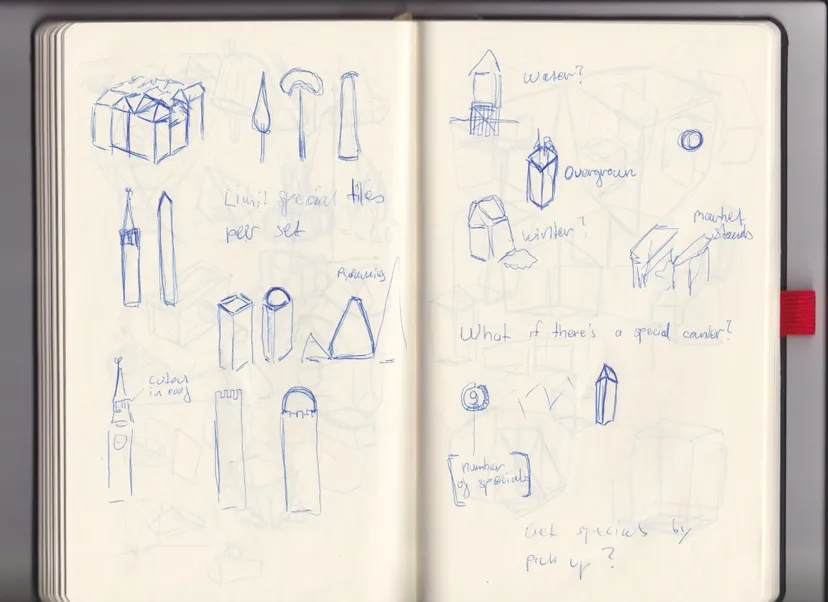 Limit special tiles
per set
Pyramids
Colour
in roof
Water?
Overgrown
Winter?
market
stands
What if there's a special counter?
9
[number
of specials]
Get specials by
pick up?